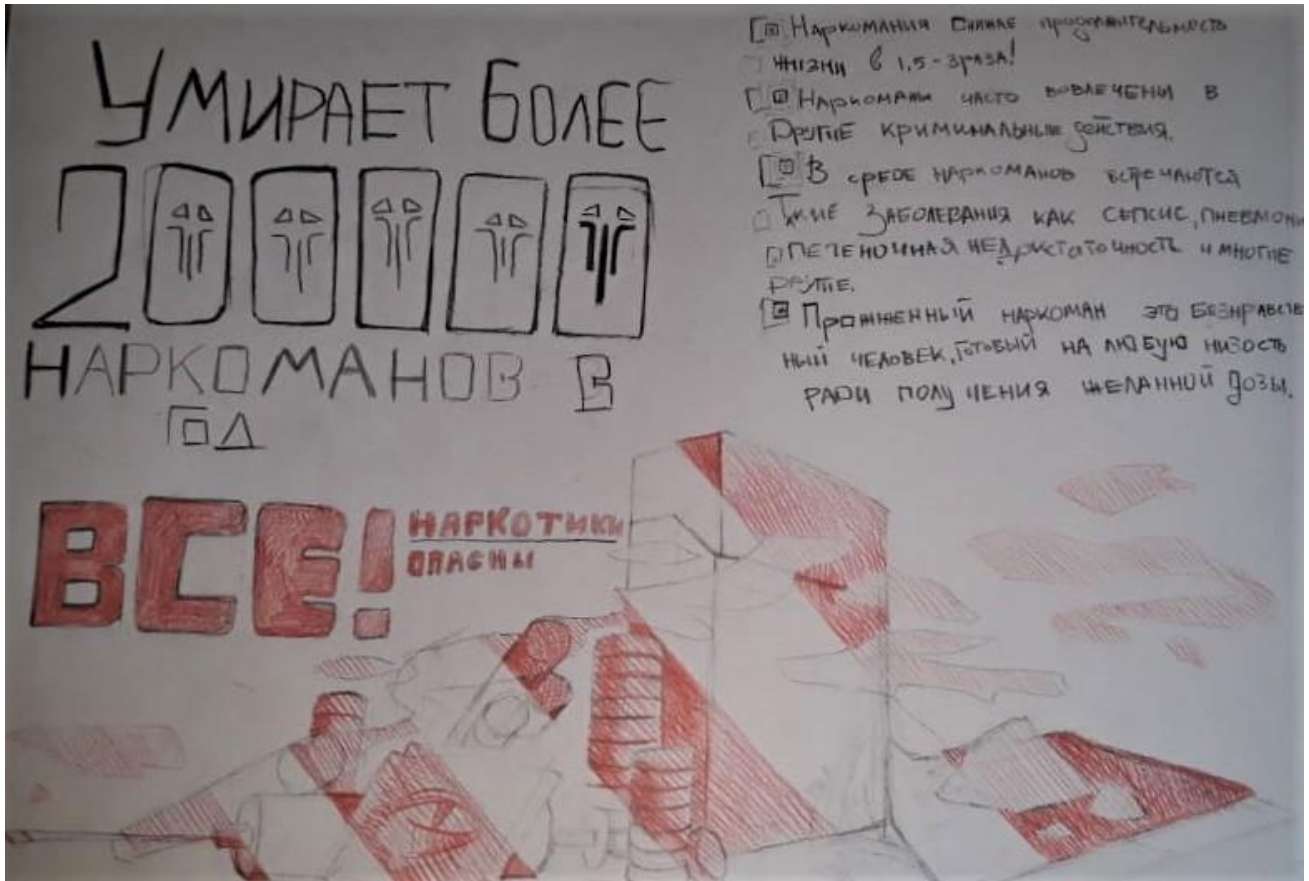 УМИРАЕТ БОЛЕЕ
200000
НАРКОМАНОВ В
ГОД
Наркомания снижае продолжительность
жизни в 1,5-3раза!
Наркоманы часто вовлечены в
Другие криминальные действия.
В среде наркоманов встречаются
Такие заболевания как сепсис, пневмони
печеночная недостаточность и многие
другие.
Прожженный наркоман это безнравствен
ный человек, готовый на любую низость
ради получения желанной дозы.
ВСЕ!
НАРКОТИКИ
ОПАСНЫ